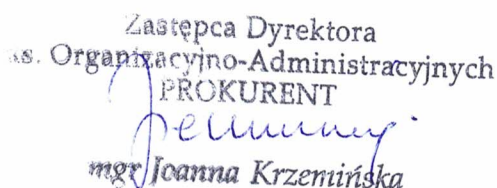 Zastępca Dyrektora
s. Organizacyjno-Administracyjnych
PROKURENT
mgr Joanna Krzemińska